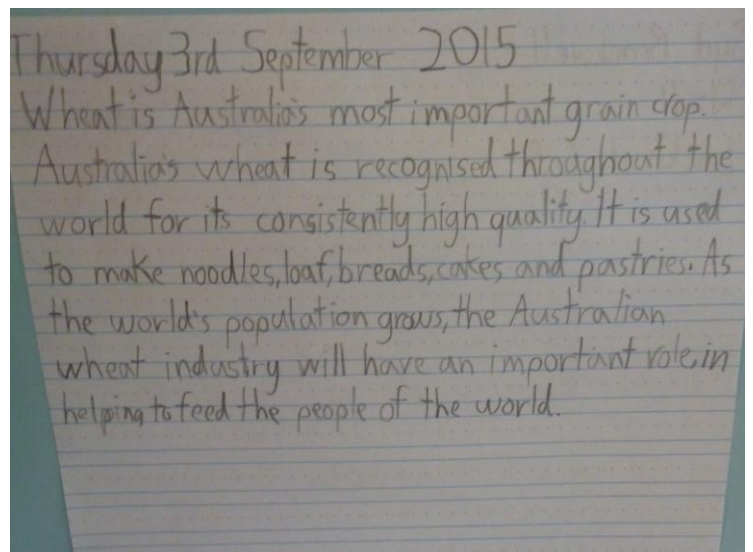 Thursday 3rd September 2015
Wheat is Australia's most important grain crop.
Australia's wheat is recognised throughout the
world for its consistently high quality. It is used
to make noodles, loaf, breads, cakes and pastries. As
the world's population grows, the Australian
wheat industry will have an important role, in
helping to feed the people of the world.